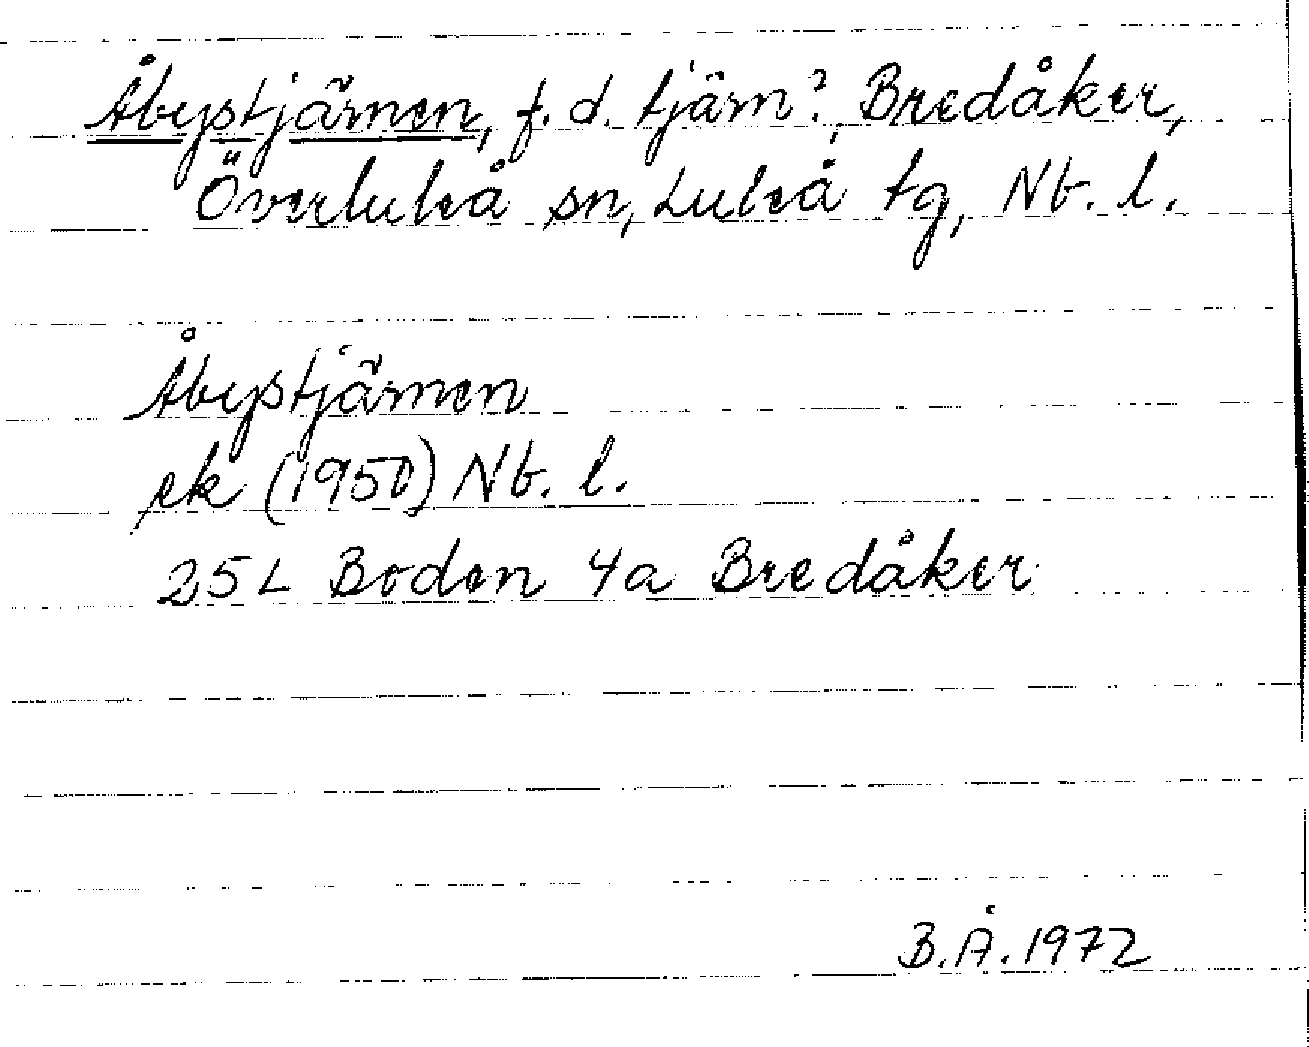 Åbystjärnen, f.d. tjärn?, Bredåker,
Överluleå sn, Luleå tg, Nb. l.
Åbystjärnen
ek (1950) Nb. l.
25L Boden 4a Bredåker
B.Å. 1972